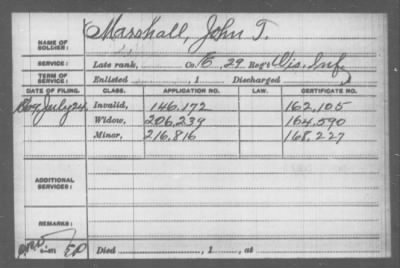 NAME OF SOLDIER: Marshall, John T.
SERVICE: Late rank, Co. E, 29 Reg't Wis. Inf.
TERM OF SERVICE: Enlisted , 1 Discharged
DATE OF FILING. CLASS. APPLICATION NO. LAW. CERTIFICATE NO.
July 24 Invalid, 146,172 162,105
Widow, 206,239 164,590
Minor, 216,816 168,227
ADDITIONAL SERVICES:
REMARKS:
Died , 1 , at